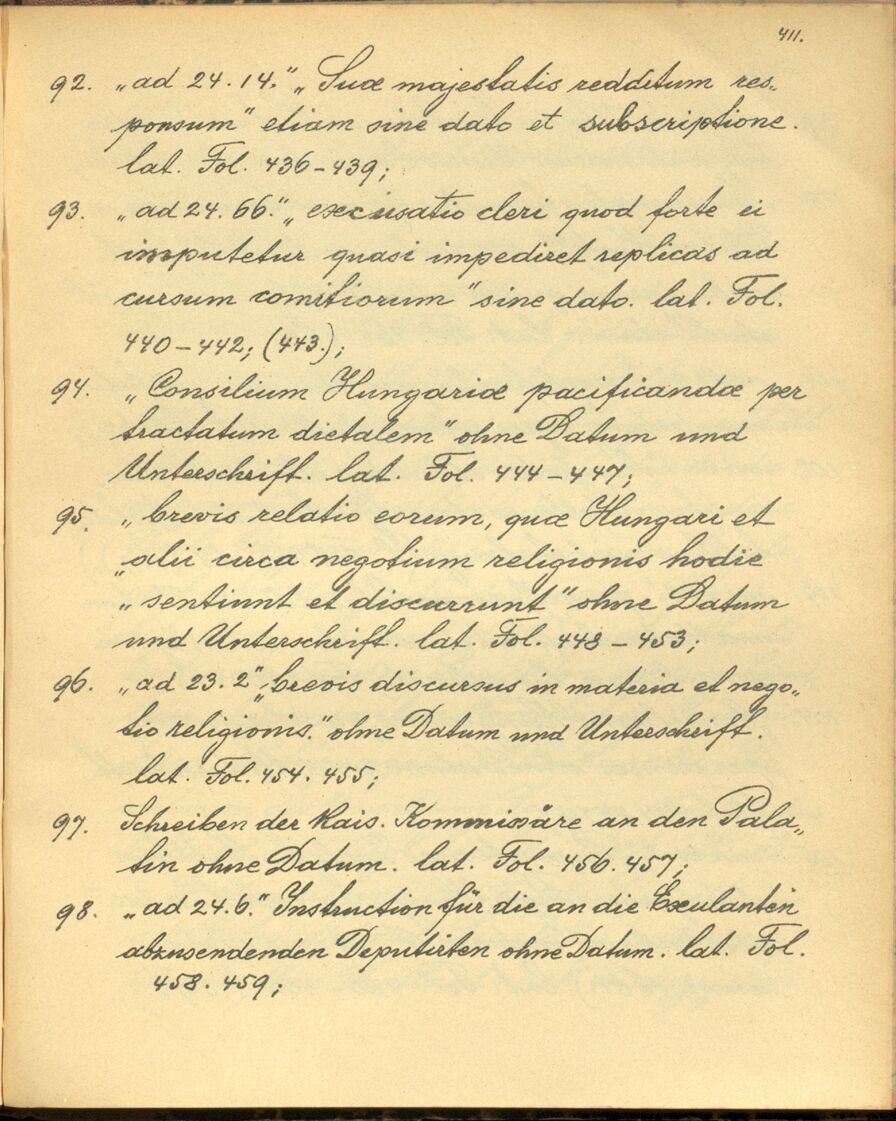 411.
92. „ad 24.14.“ „Suæ majestatis redditum res„
ponsum“ etiam sine dato et subscriptione.
lat. Fol. 436–439;
93. „ad 24. 66.“ „excusatio cleri quod forte ei
imputetur quasi impediret replicas ad
cursum comitiorum“ sine dato. lat. Fol.
440–442; (443.);
94. „Consilium Hungariæ pacificandæ per
tractatum dietalem“ ohne Datum und
Unterschrift. lat. Fol. 444–447;
95. „brevis relatio eorum, quæ Hungari et
„alii circa negotium religionis hodie
„sentiunt et discurrunt“ ohne Datum
und Unterschrift. lat. Fol. 448–453;
96. „ad 23. 2“ „brevis discursus in materia et nego„
tio religionis.“ ohne Datum und Unterschrift.
lat. Fol. 454. 455;
97. Schreiben der Kais. Kommissäre an den Pala„
tin ohne Datum. lat. Fol. 456. 457;
98. „ad 24.6.“ Instruction für die an die Exulanten
abzusendenden Deputirten ohne Datum. lat. Fol.
458. 459;